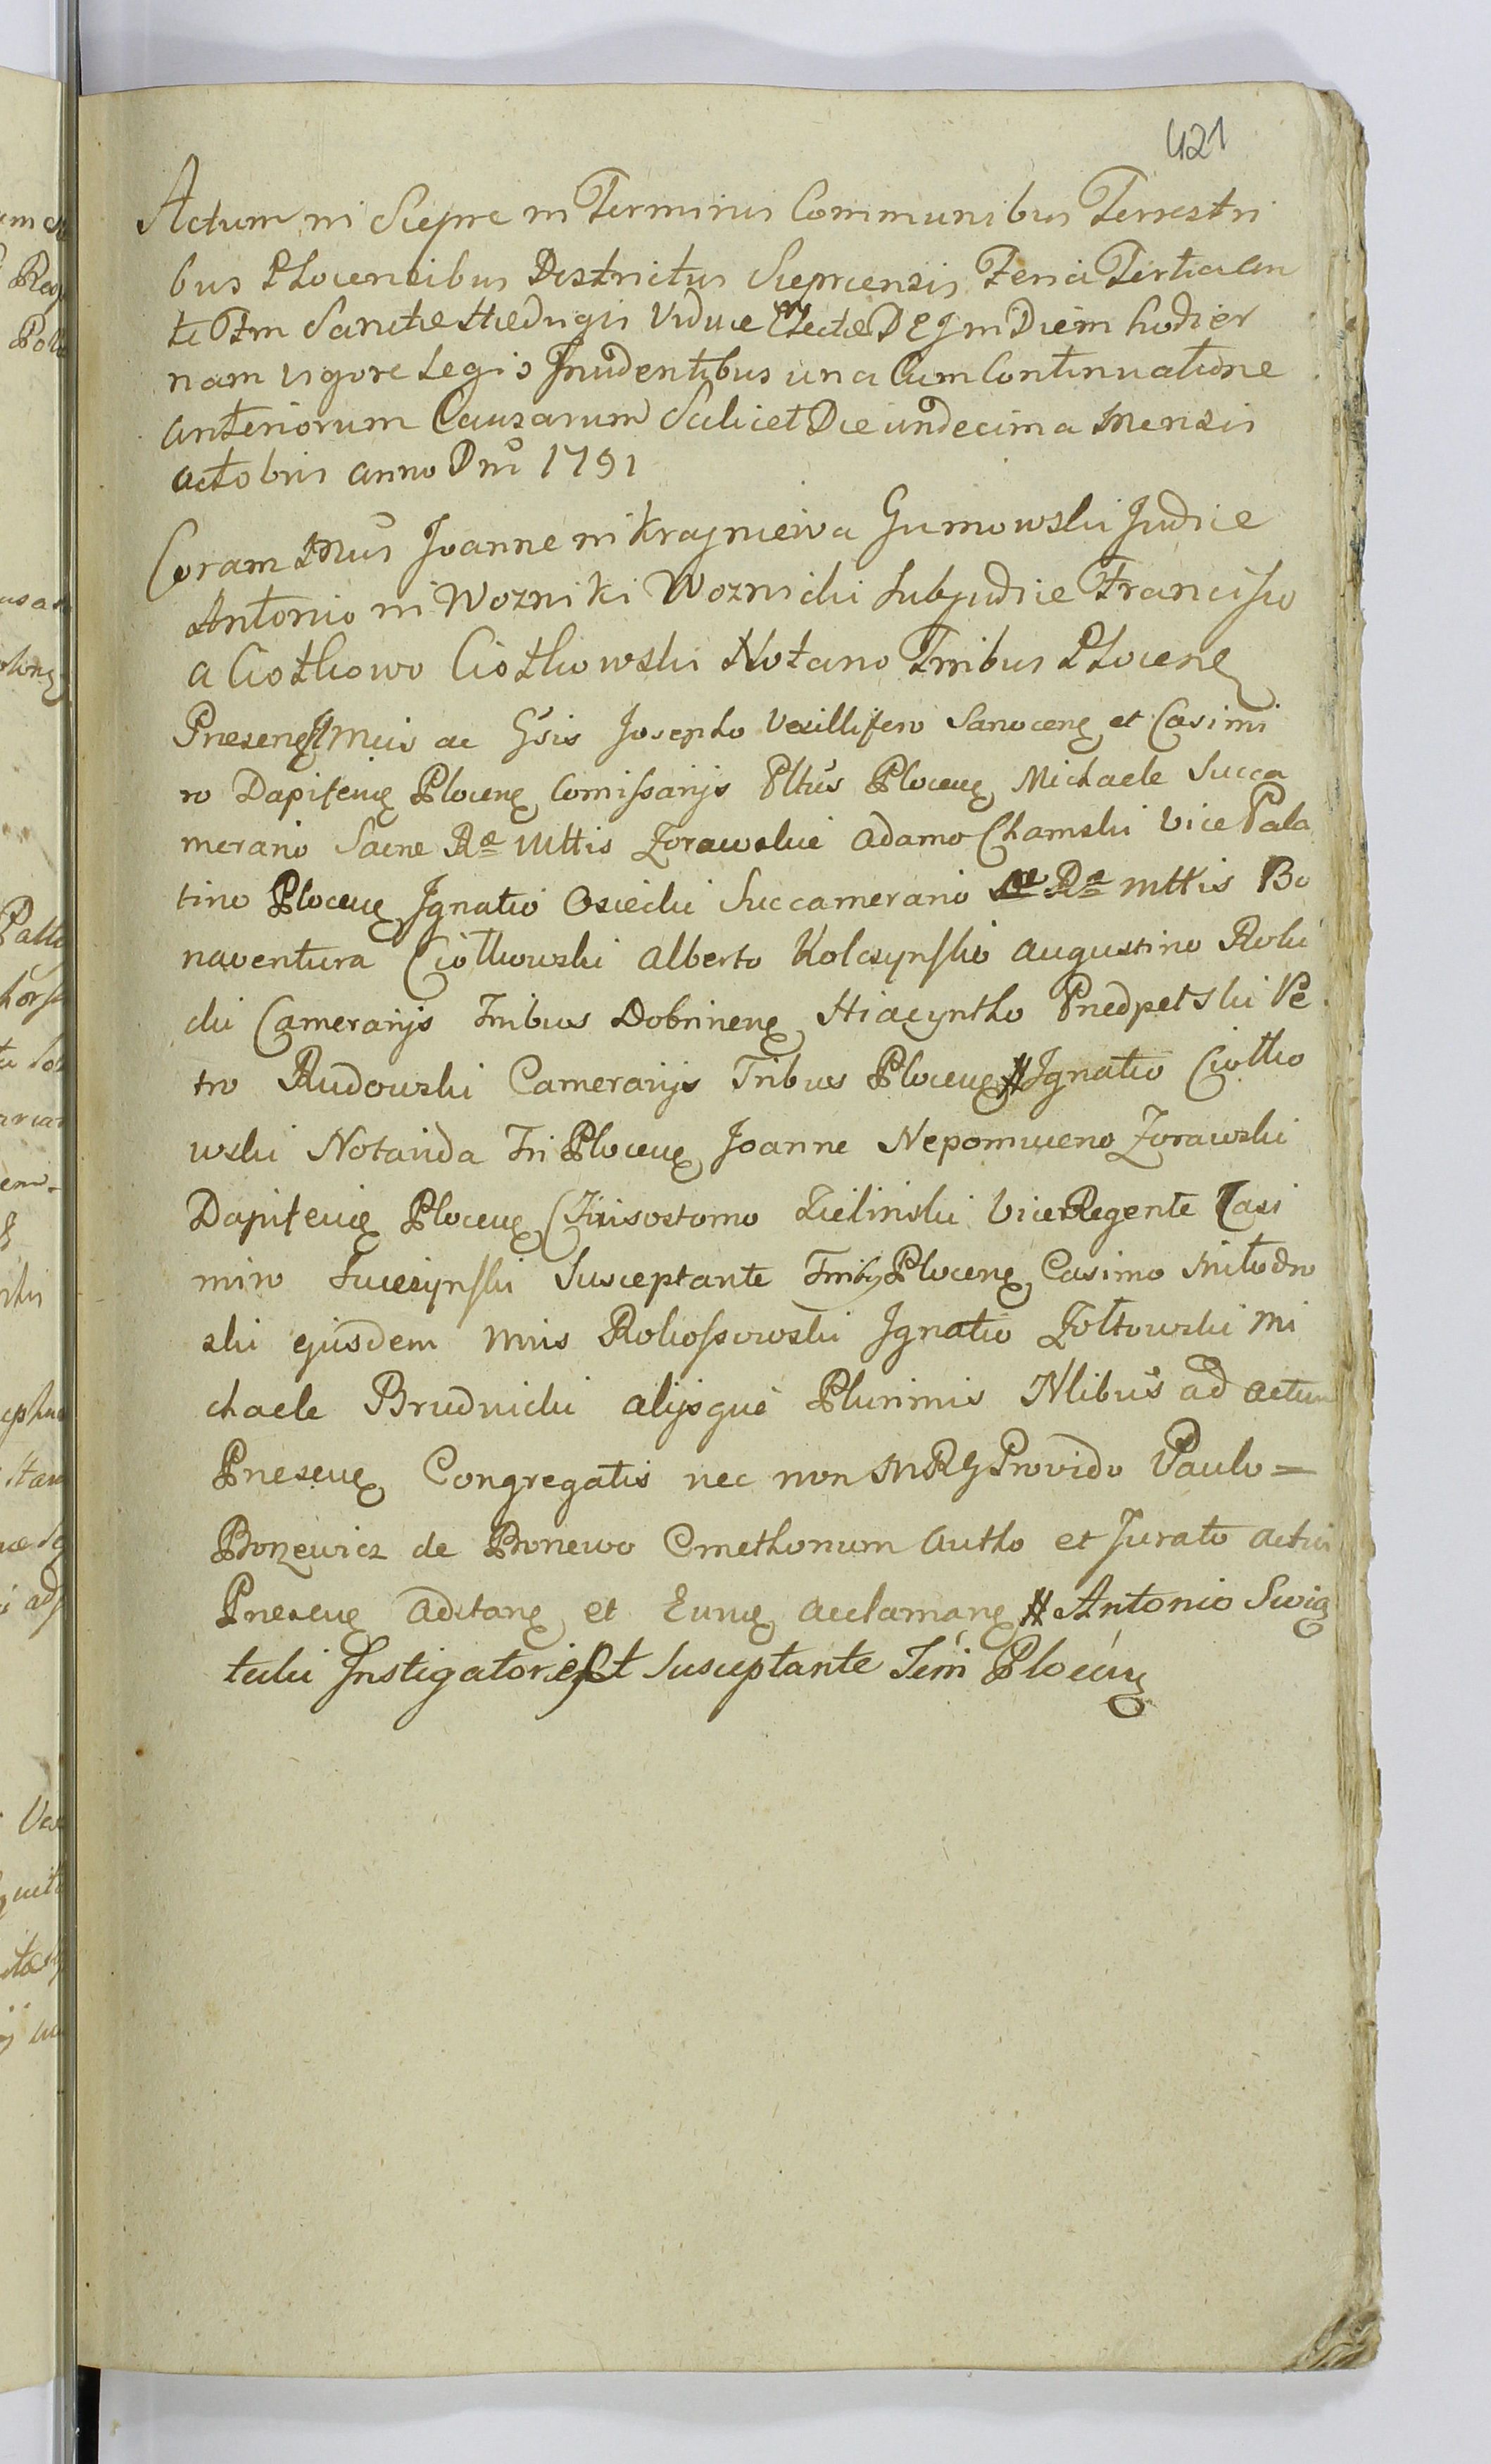 421
Actum in Siepre in Terminis Communibus Terrestri
bus Plocensibus Districtus Sieprcensis Feria Tertia an
te Ftm Sanctæ Hædvigis Viduæ Electæ in Diem hodier
nam vigore Legis Inudentibus una Cum Continuatione
anteriorum Causarum Scilicet Die undecima Mensis
octobris anno Dni 1791
Coram Mcis Joanne in Krajniewa Gumowski Judice
Antonio in Wozniki Woznicki Subjudice Francisco
a Ciołkowo Ciołkowski Notario Trribus Plocenę
Presenę Mcis ac Gsis Josepho Vexillifero Sanocenę et Casimi
ro Dapiferię Plocenę Comissarijs Pltus Plocenę Michaele Succa
merario Sacræ Ræ Mttis Zorawskie Adamo Chamski Vice Pala
tino Plocenę Ignatio Osiecki Succamerario Ræ Mttis Bo
naventura Ciołkowski Alberto Kolczynskio Augustino Roki
cki Camerarijs Tribus Dobrinenę Hiacyntho Predpetski Pe
tro Rudowski Camerarijs Tribus Plocenę # Ignatio Ciołko
wski Notarida Tri Plocenę Joanne Nepomuceno Zorawski
Dapiferię Plocenę Chrisostomo Zielinski Vice Regente Casi
miro Suceszynski Susceptante Trriby Plocenę Casimo Milodro
ski ejusdem Mris Rokossowski Ignatio Zołtowski Mi
chaele Brudnicki alijsque Plurimis Nlibus ad actum
Presenę Congregatis nec non MRG Provido Paulo =
Bonzewicz de Bonewo Cmethonum Autho et Jurato actui
Presenę Aditanę et Eunę acclamanę # Antonio Swię
tecki Instigatori et Susceptante Terri Plocenę